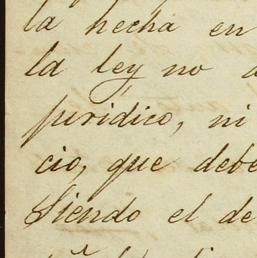 la hecha en
la ley no
juridico, ni
cio, que debe
Siendo el de